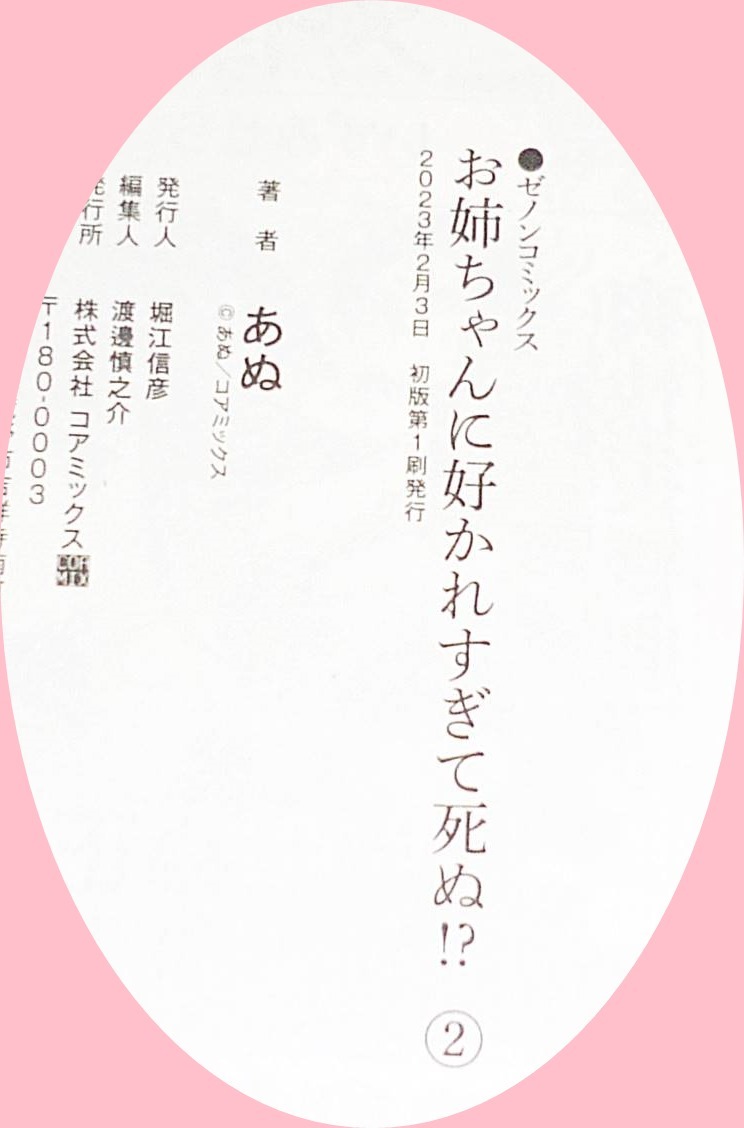 ●ゼノンコミックス
お姉ちゃんに好かれすぎて死ぬ!? ②
2023年2月3日 初版第1刷発行
著者 あぬ
©あぬ/コアミックス
発行人 堀江信彦
編集人 渡邊慎之介
発行所 株式会社コアミックス
〒180-0003